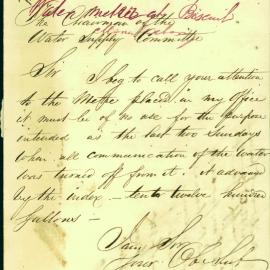 Water meter at Biscuit
The Chairman of the
Water Supply Committee
Sir I beg to call your attention
to the Metre placed in my office
it must be of no use for the purpose
intended as the last two Sundays
when all communication of the Water
was turned off from it. it advanced
by the index — ten to twelve hundred
gallons —
I am Sir
Your